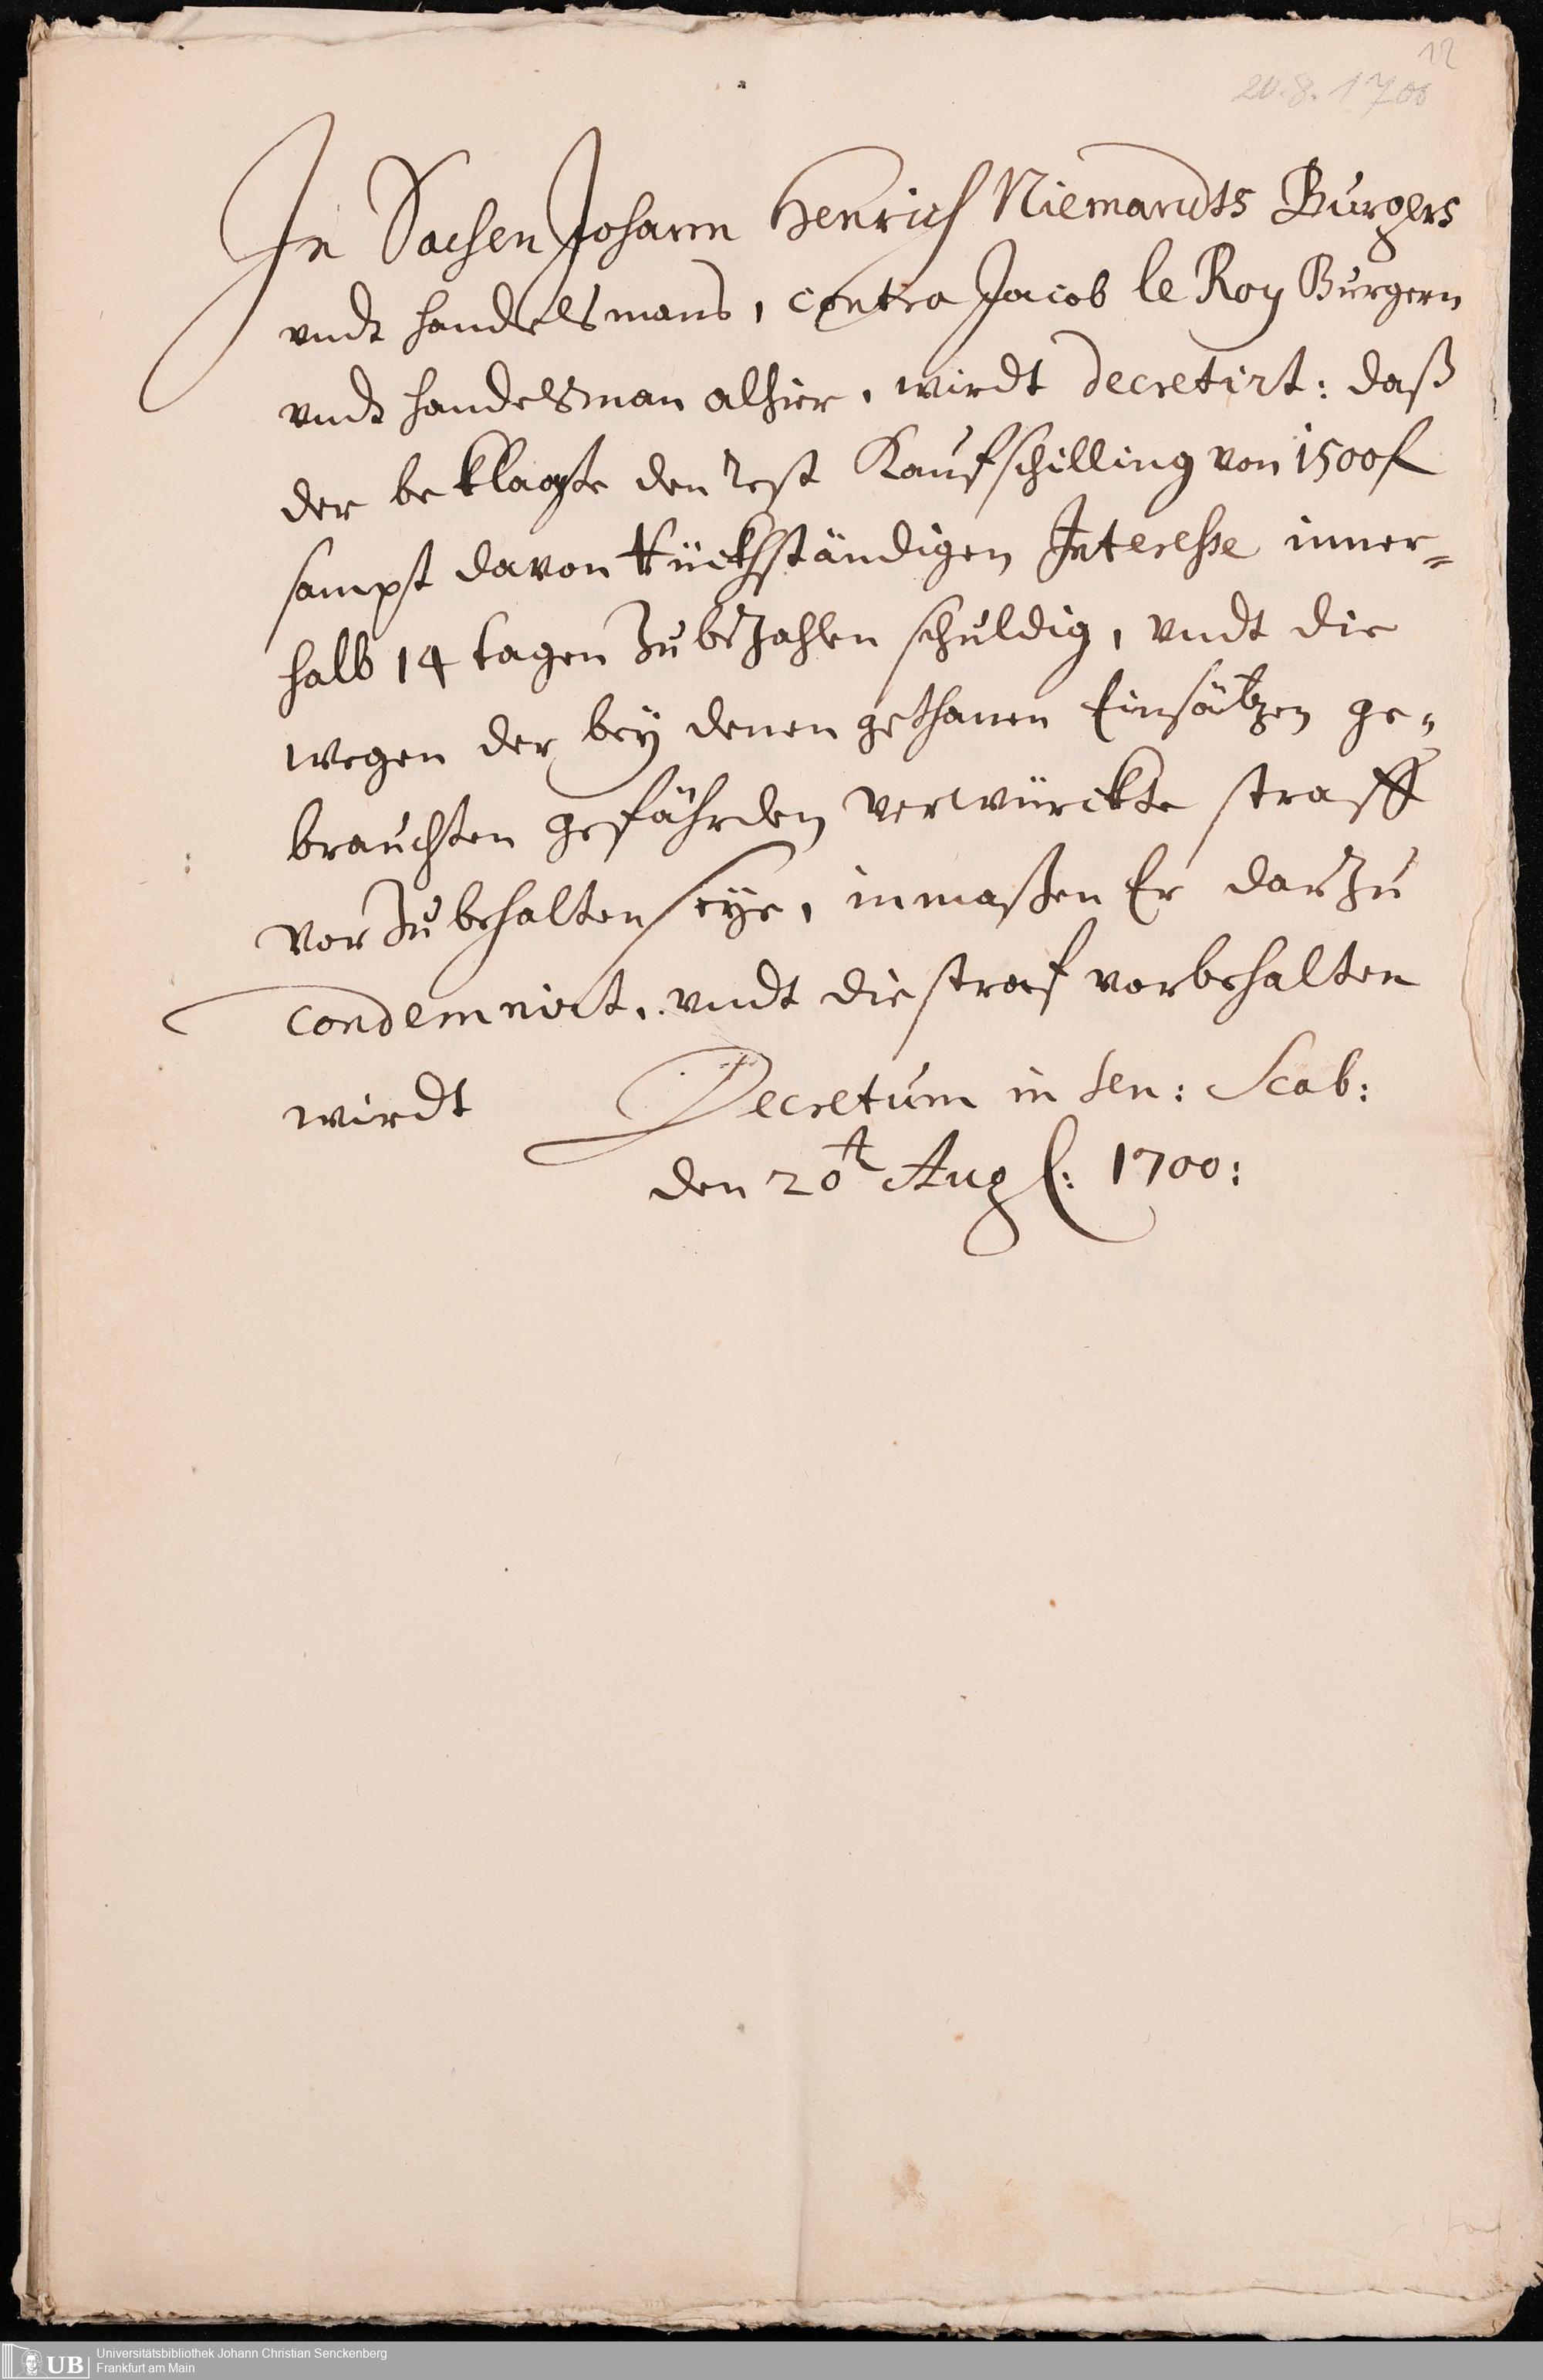 12
20.8.1700
In Sachen Johann Henrich Niemandts Burgers
undt handelsmans, contra Jacob le Roy Burgern
undt handelsman alhier, wirdt decretirt: daß
der beklagte den rest Kaufschilling von 1500 f
sampt davon Rückständigen Interesse inner=
halb 14 tagen Zu beZahlen schuldig, undt die
wegen der bey denen gethanen Einsätzen ge=
brauchten gefährden verwürckte straff
vorZubehalten seye, inmaßen Er darZu
condemnirt, undt die straf vorbehalten
wirdt Decretum in Sen: Scab:
den 20t Aug: 1700:
UB
Universitätsbibliothek Johann Christian Senckenberg
Frankfurt am Main